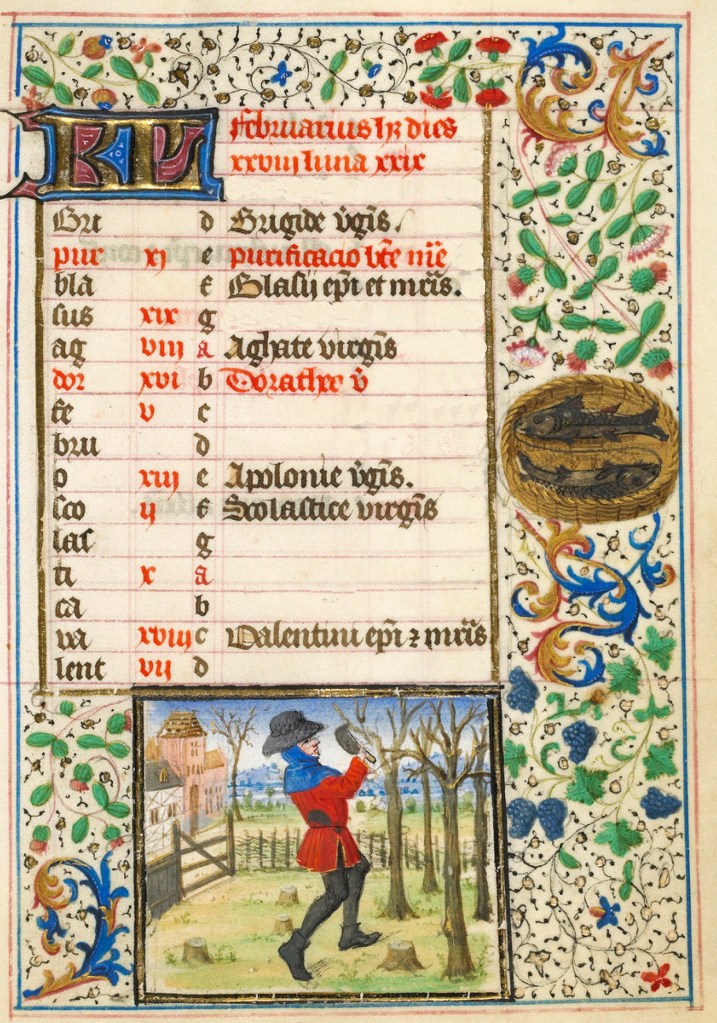 KL februarius hꝫ dies
xxviij luna xxix
Bri d Brigide v̄gīs.
pur xj e purificacio bt̄e mīe
bla f Blasij ep̄i et mr̄is.
sus xix g
ag viij a Aghate virgīs
dor xvi b Dorathee v̄
fe v c
bru d
o xiij e Apolonie v̄gīs.
sco ij f Scolastice virgīs
las g
ti x a
ca b
va xviij c Valentini ep̄i ⁊ mr̄is
lent vij d